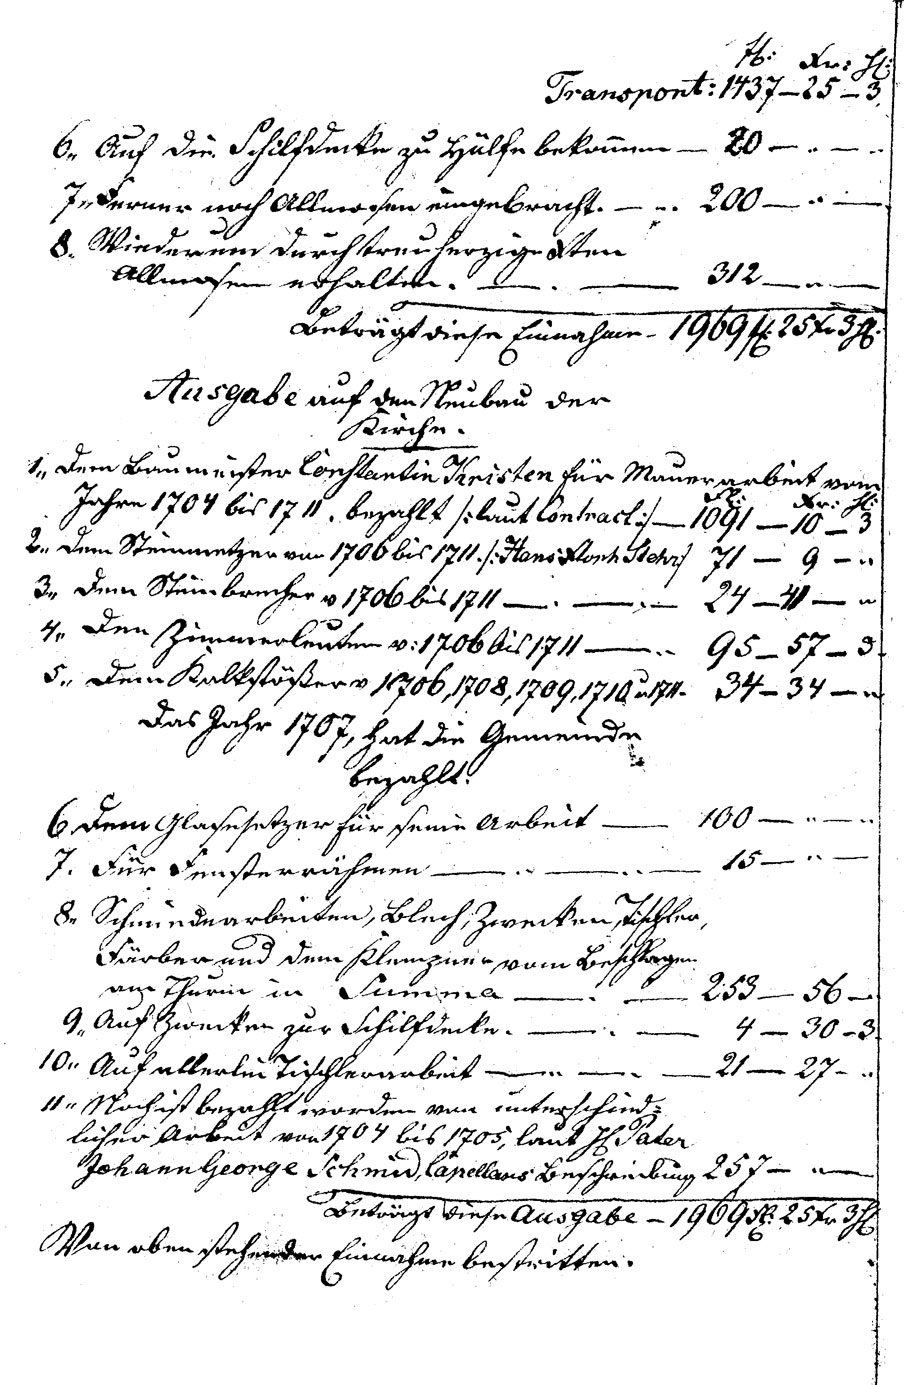 fl: Kr: Hl:
Transpont: 1437 — 25 — 3.
6. Auf die Schilfdecke zu Hülfe bekommen — 20 — " — "
7. Ferner noch Allmosen eingebracht. — " 200 — " —
8. Wiederum durch treuherzige
Allmosen erhalten. — . — 312 — " —
Beträgt diese Einnahme — 1969 fl: 25 Kr 3 Hl.
Ausgabe auf den Neubau der
Kirche.
1. Dem Baumeister Constantin Kristen für Maurerarbeit vom
fl: Kr: Hl:
Jahre 1704 bis 1711. bezahlt /:laut Contract:/ — 1091 — 10 — 3
2. Dem Steinmetzer von 1706 bis 1711. /: Hans 71 — 9 — "
3. Dem Steinbrecher v 1706 bis 1711 — . — . — 24 — 41 — "
4. Den Zimmerleuten v: 1706 bis 1711 — " 95 — 57 — 3.
5. Dem Kalkstößer v 1706, 1708, 1709, 1710 u 1711. 34 — 34 — "
Das Jahr 1707, hat die Gemeinde
bezahlt:
6. Dem Glasesetzer für seine Arbeit — 100 — " — "
7. Für Fensterrähmen — " — " — 15 — " —
8. Schmiedearbeiten, Blech, Zwecken, Tischler,
Färber und dem Klempner vom Beschlagen
am Thurm in Summa — . — 253 — 56 —
9. Auf Zwecken zur Schilfdecke. — " — 4 — 30 — 3.
10. Auf allerlei Tischlerarbeit — " — " — 21 — 27 - "
11. Noch ist bezahlt worden von unterschied=
licher Arbeit von 1704 bis 1705, laut H Pater
Johann George Schmid, Capellans Beschreibung 257 — " —
Beträgt diese Ausgabe — 1969 fl: 25 Kr 3 Hl
Von oben stehender Einnahme bestritten.